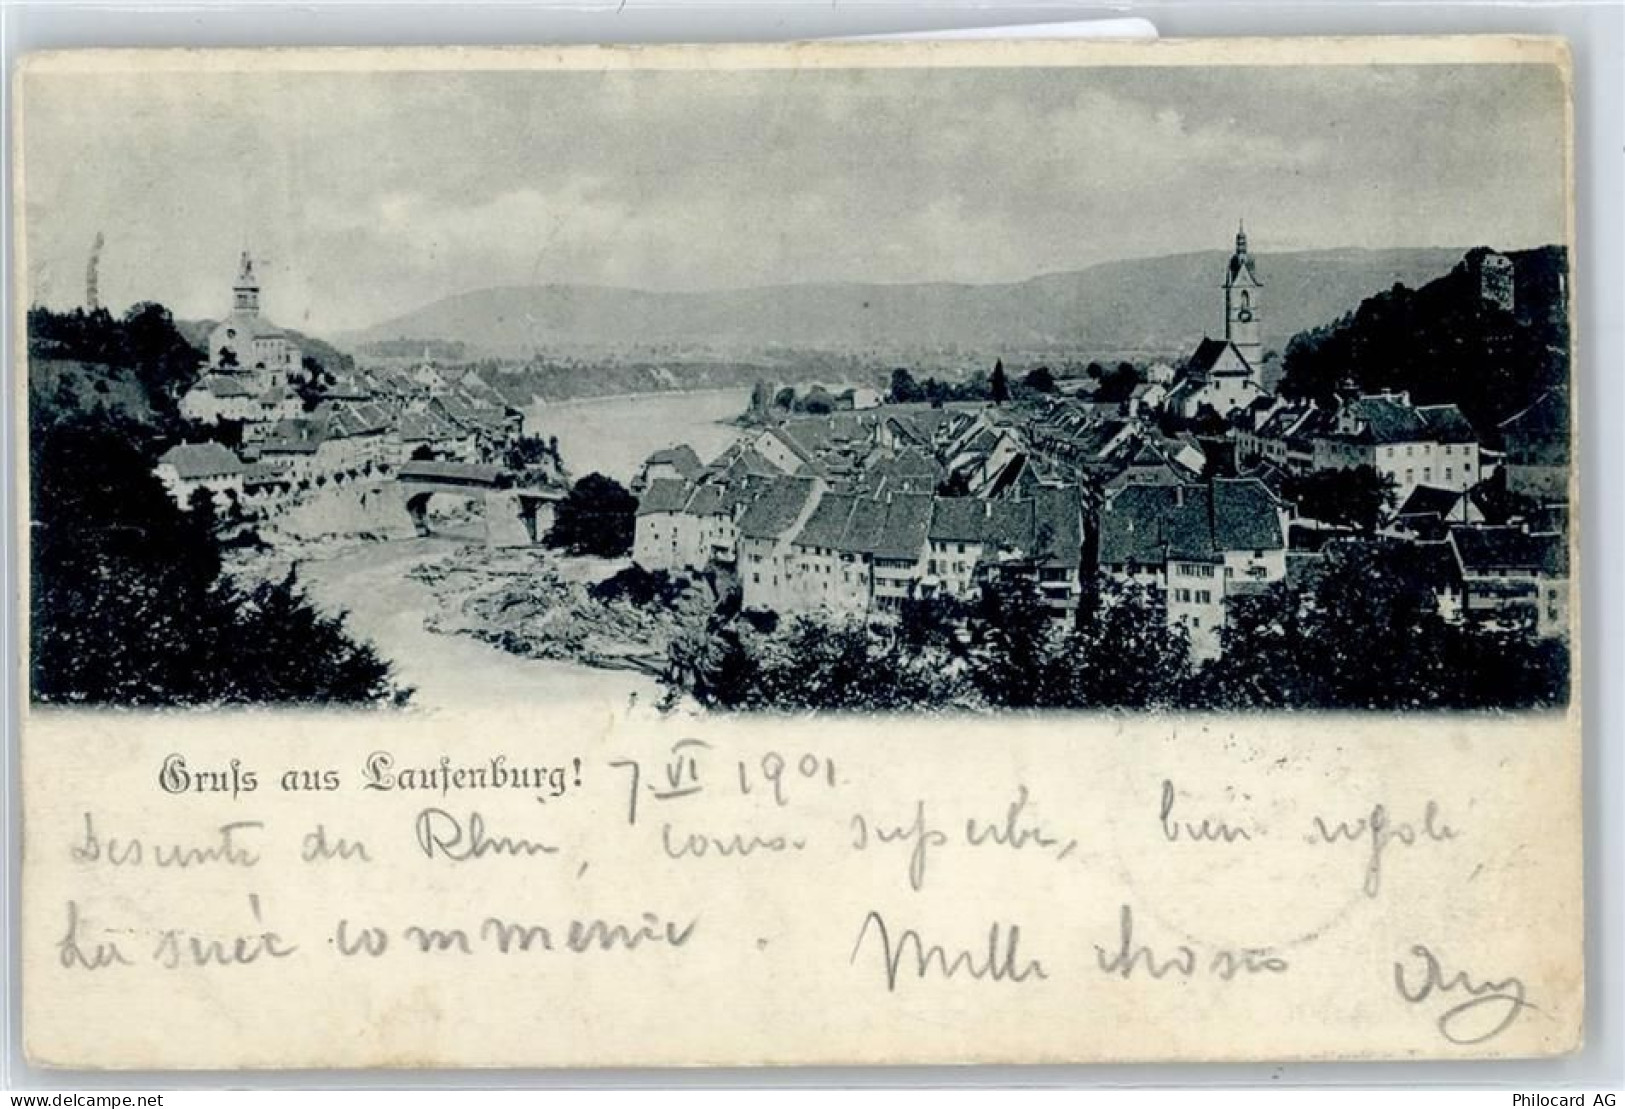 Gruss aus Laufenburg! 7. VI 1901.
Descente du Rhin, cours superbe, bien rigolé
La suée commence. Mille choses
Philocard AG
www.delcampe.net